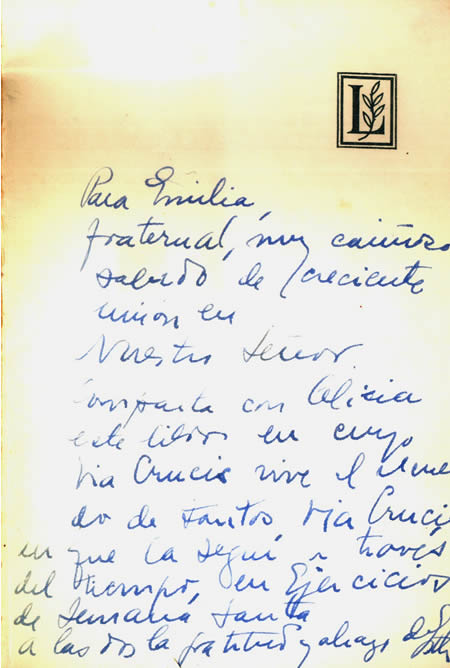 L
Para Emilia,
fraternal, muy cariñoso
saludo de creciente
unión en
Nuestro Señor
Comparta con Alicia
este libro en cuyo
Via Crucis vive el recuer
do de tantos Via Crucis
en que la seguí a través
del tiempo, en Ejercicios
de Semana Santa
a las dos la gratitud y abrazo de